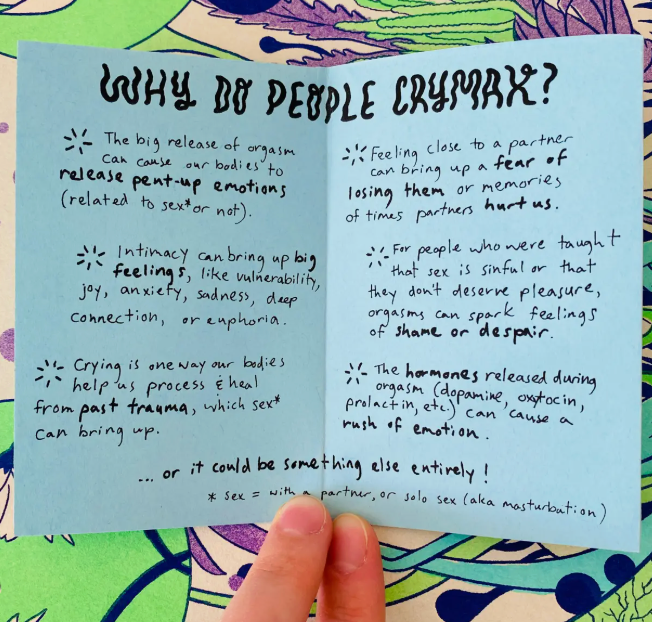 WHY DO PEOPLE CRYMAX?
The big release of orgasm
can cause our bodies to
release pent-up emotions
(related to sex* or not).
Intimacy can bring up big
feelings, like vulnerability,
joy, anxiety, sadness, deep
connection, or euphoria.
Crying is one way our bodies
help us process & heal
from past trauma, which sex*
can bring up.
Feeling close to a partner
can bring up a fear of
losing them or memories
of times partners hurt us.
For people who were taught
that sex is sinful or that
they don't deserve pleasure,
orgasms can spark feelings
of shame or despair.
The hormones released during
orgasm (dopamine, oxytocin,
prolactin, etc.) can cause a
rush of emotion.
... or it could be something else entirely!
* sex = with a partner, or solo sex (aka masturbation)